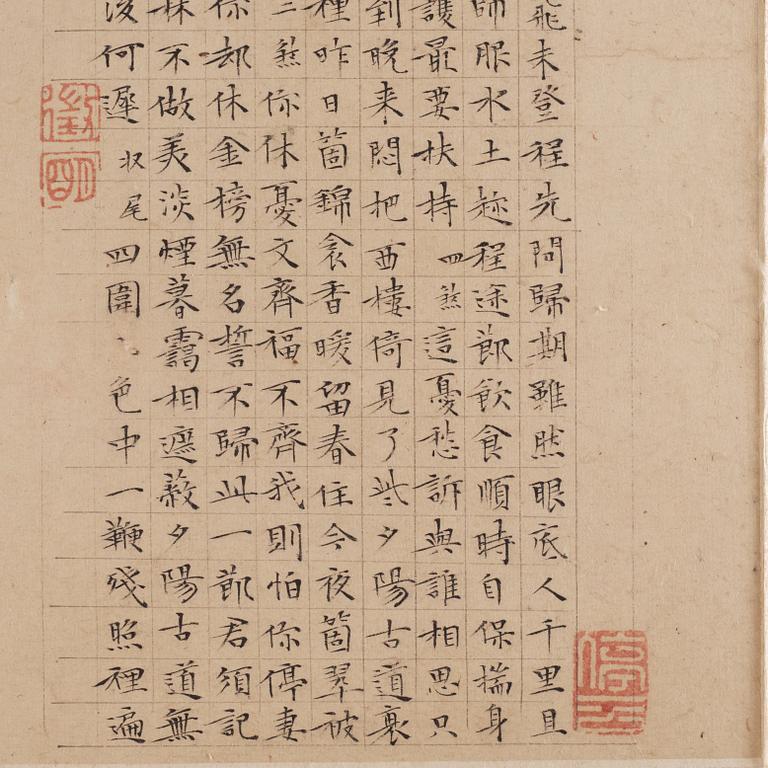 飛未登程先問歸期雖然眼底人千里且
師服水土趂程途節飲食順時自保揣身
護最要扶持四煞這憂愁訴與誰相思只
到晚来悶把西樓倚見了些夕陽古道衰
種昨日箇錦衾香暖留春住今夜箇翠被
二煞你休憂文齊福不齊我則怕你停妻
你却休金榜無名誓不歸此一節君須記
林不做美淡煙暮靄相遮蔽夕陽古道無
後何遲收尾四圍色中一鞭殘照裡遍
徵明
停云